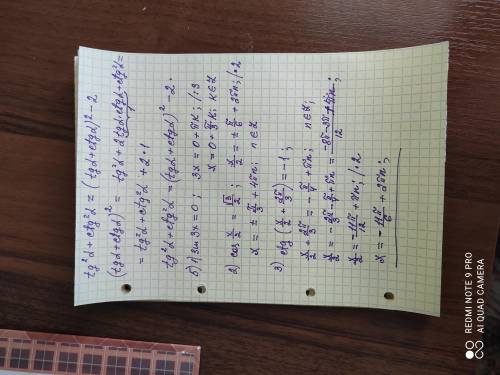 tg²α + ctg²α = (tgα + ctgα)² - 2
(tgα + ctgα)² = tg²α + 2tgα·ctgα + ctg²α =
= tg²α + ctg²α + 2·1
tg²α + ctg²α = (tgα + ctgα)² - 2.
б) 1) sin 3x = 0; 3x = 0 + πk; /:3
x = 0 + π/3 k; k∈Z
2) cos x/2 = √3/2; x/2 = ± π/6 + 2πn; /·2
x = ± π/3 + 4πn; n∈Z
3) ctg (x/2 + 2π/3) = -1;
x/2 + 2π/3 = - π/4 + πn; n∈Z;
x/2 = - 2π/3 - π/4 + πn = (-8π - 3π + πn)/12;
x/2 = - 11π/12 + πn; /·2
x = - 11π/6 + 2πn;
REDMI NOTE 9 PRO
AI QUAD CAMERA